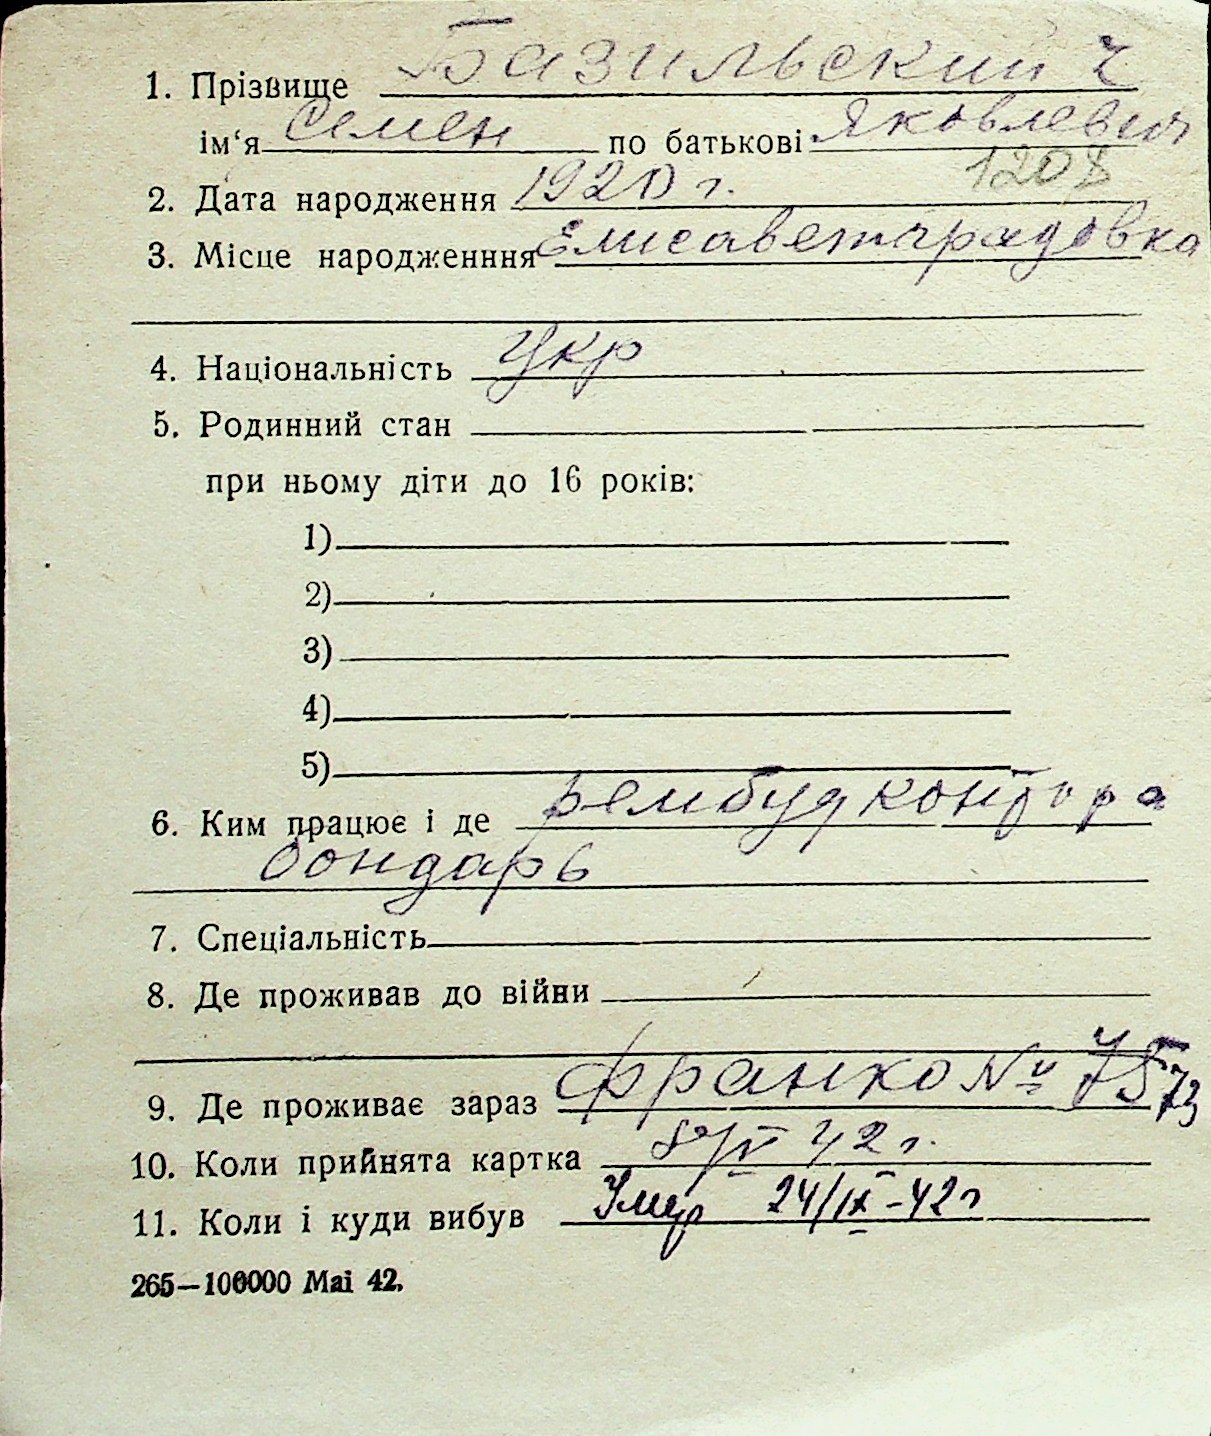 1. Прізвище Базильский ч
ім‘я Семен по батькові Яковлевич
1208
2. Дата народження 1920 г.
3. Місце народженння Елисаветградовка
4. Національність Укр
5. Родинний стан
при ньому діти до 16 років:
1)
2)
3)
4)
5)
6. Ким працює і де рембудконтора
бондарь
7. Спеціальність
8. Де проживав до війни
9. Де проживає зараз Франко № 75
10. Коли прийнята картка 42 г.
11. Коли і куди вибув Умер 24/IX-42г
265—100000 Mai 42.